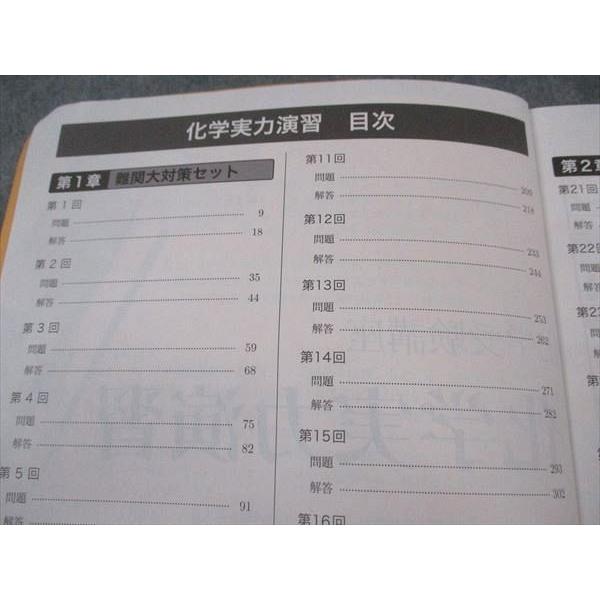 化学実力演習 目次
第1章 難関大対策セット
第1回
問題 9
解答 18
第2回
問題 35
解答 44
第3回
問題 59
解答 68
第4回
問題 75
解答 82
第5回
問題 91
解答
第11回
問題 209
解答 218
第12回
問題 233
解答 244
第13回
問題 253
解答 262
第14回
問題 271
解答 282
第15回
問題 293
解答 302
第16回
第2章
第21回
問題
解答
第22回
問題
解答
第23回
問題